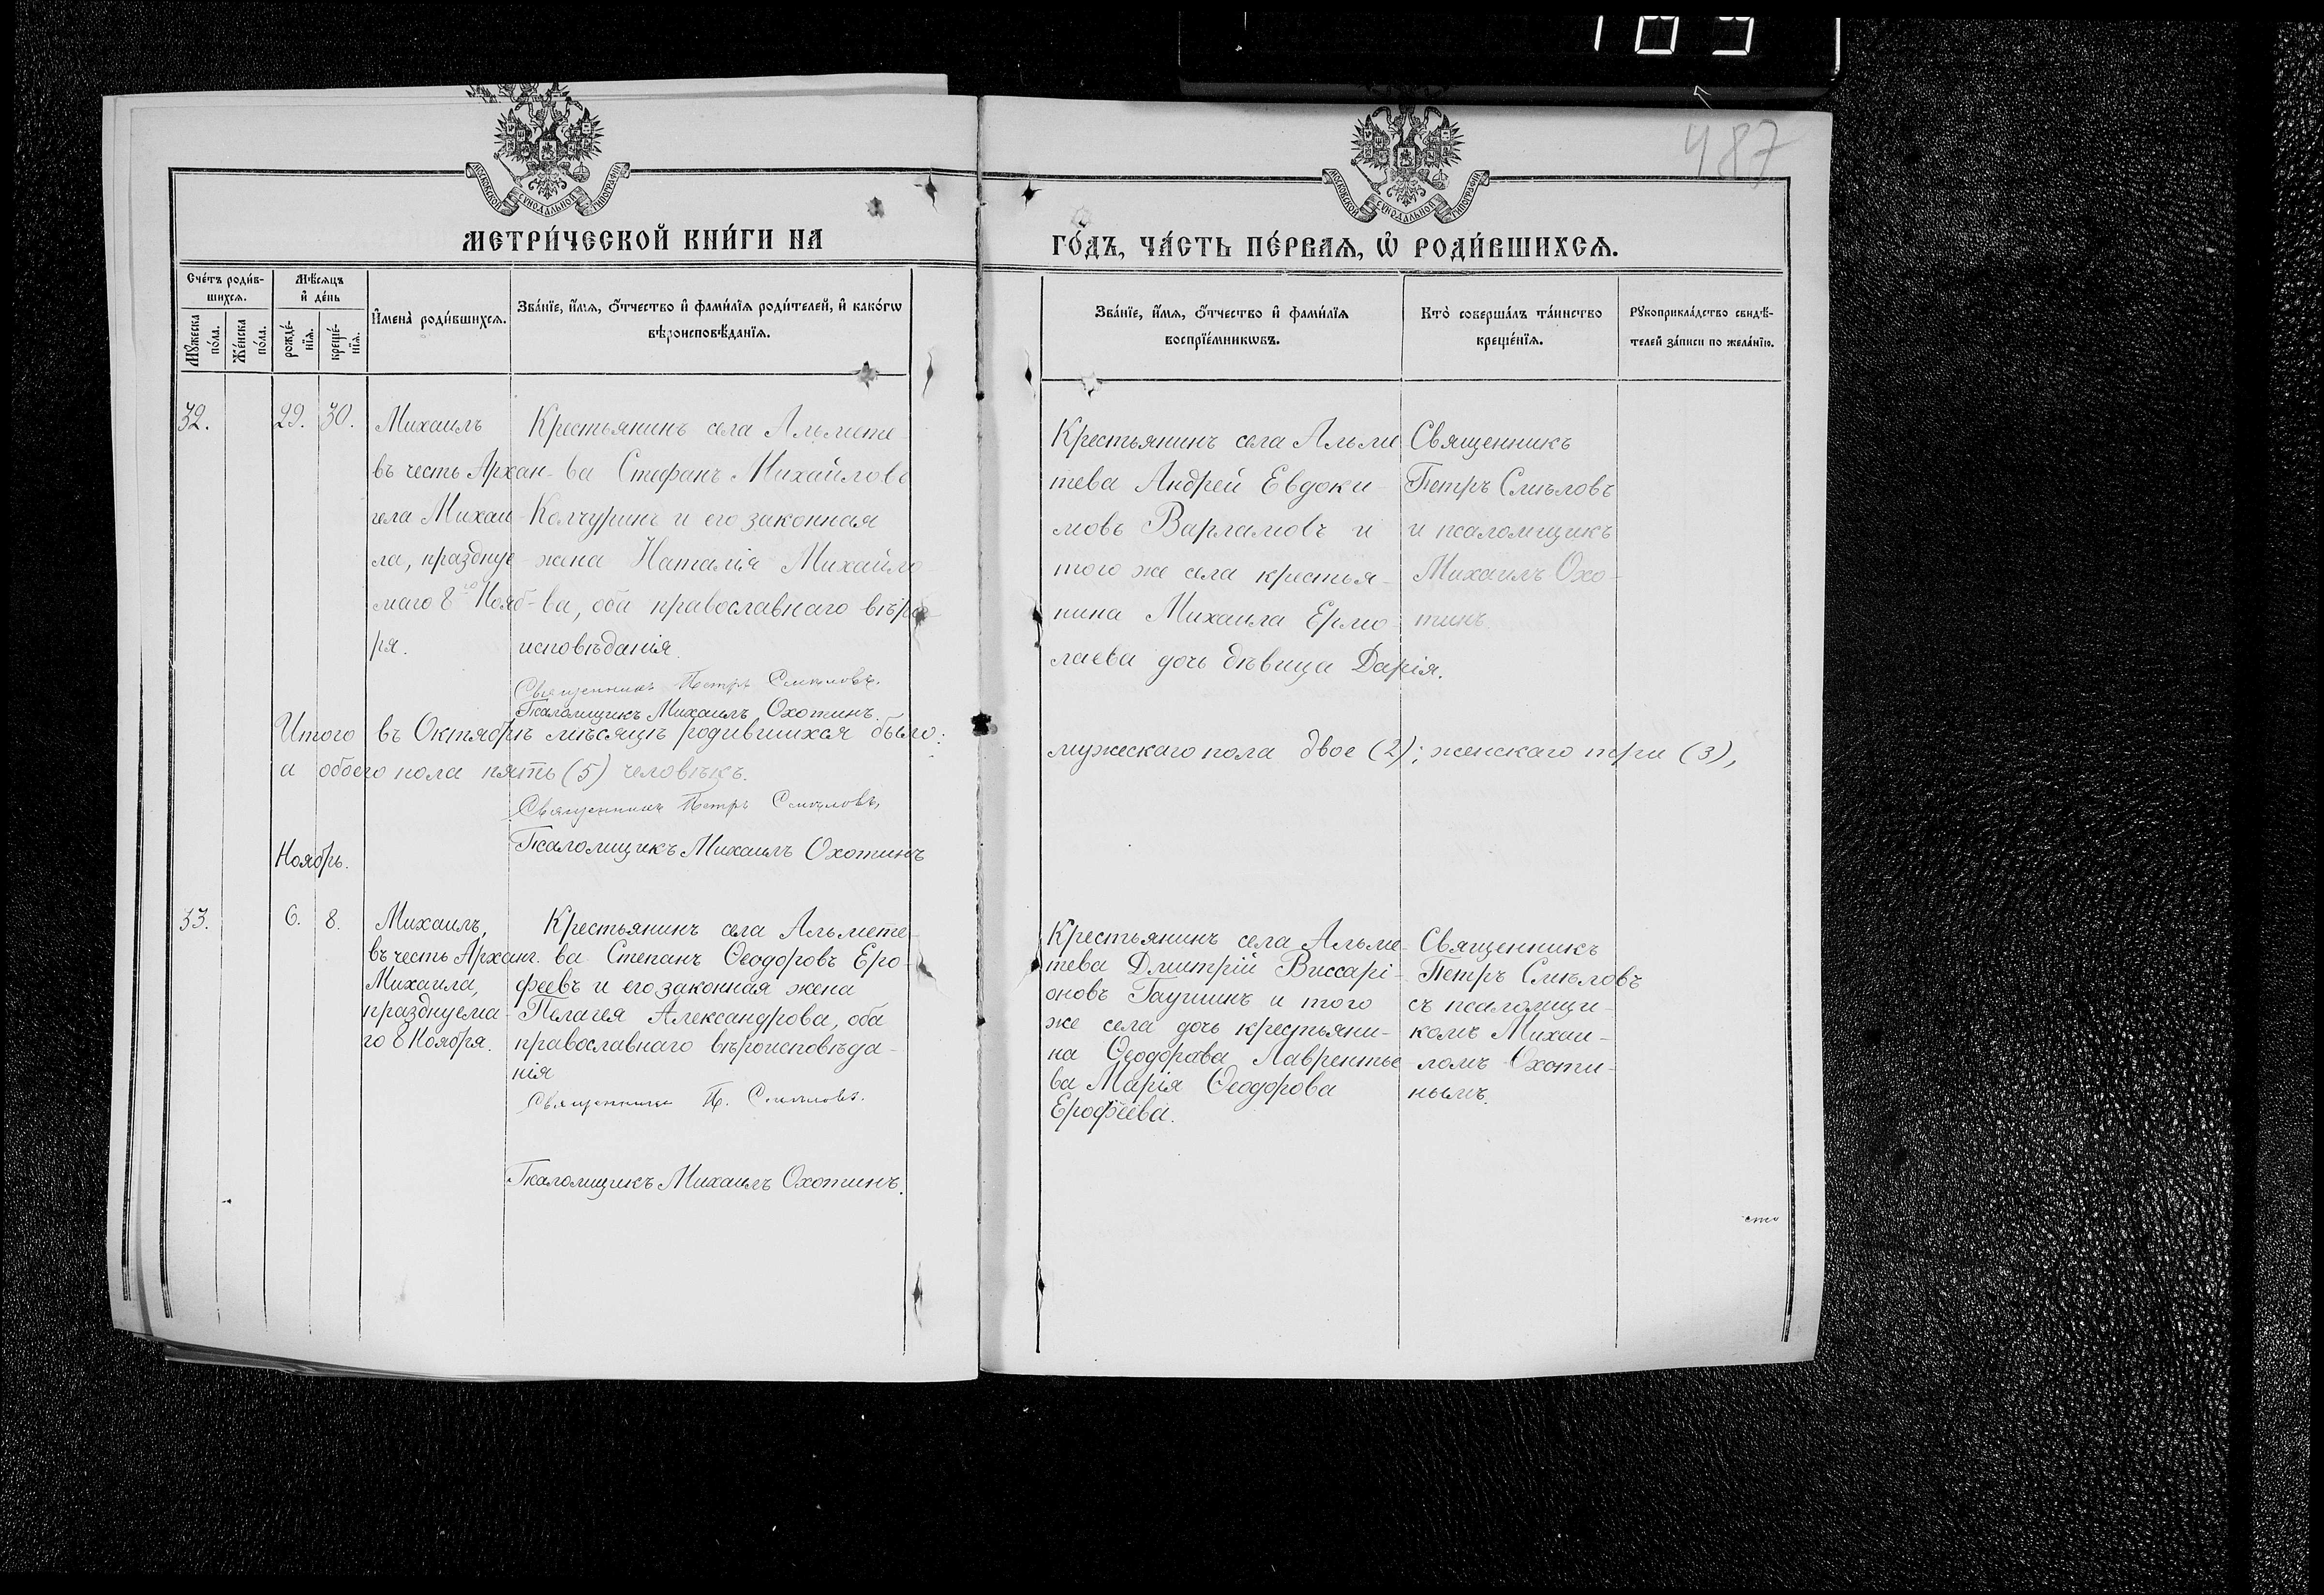 189
487
МОСКОВСКОЙ СѴНОДАЛЬНОЙ ТИПОГРАФІИ
МОСКОВСКОЙ СѴНОДАЛЬНОЙ ТИПОГРАФІИ
МЕТРИ́ЧЕСКОЙ КНИ́ГИ НА
ГО́ДЪ, ЧА́СТЬ ПЕ́РВАѦ, Ѡ҆ РОДИ́ВШИХСѦ.
Сче́тъ роди́в-
шихсѧ.
Мꙋ́жеска
по́ла.
Же́нска
по́ла.
Мѣ́сѧцъ
и҆ де́нь
рожде́-
нїѧ.
креще́-
нїѧ.
И҆мена̀ роди́вшихсѧ.
Зва́нїе, и҆́мѧ, ѻ҆́тчество и҆ фами́лїѧ роди́телей, и҆ како́гѡ
вѣроисповѣ́данїѧ.
Зва́нїе, и҆́мѧ, ѻ҆́тчество и҆ фами́лїѧ
воспрїе́мникѡвъ.
Кто̀ соверша́лъ та́инство
креще́нїѧ.
Рꙋкоприкла́дство свидѣ́-
телей за́писи по жела́нїю.
32.
29.
30.
Михаилъ
въ честь Архан-
гела Михаи
ла, праздну е
маго 8го Нояб-
ря.
Крестьянинъ села Альмете-
ва Стефанъ Михайловъ
Колчуринъ и его законная
жена Наталія Михайло
ва, оба православнаго вѣро
исповѣданія.
Священникъ Петръ Смѣловъ.
Псаломщикъ Михаилъ Охотинъ.
Крестьянинъ села Альме
тева Андрей Евдоки-
мовъ Варламовъ и
того же села крестья-
нина Михаила Ермо-
лаева дочь дѣвица Дарія.
Священникъ
Петръ Смѣловъ
и псаломщикъ
Михаилъ Охо-
тинъ.
Итого въ Октябрѣ мѣсяцѣ родившихся было: мужескаго пола двое (2); женскаго три (3),
а обоего пола пять (5) человѣкъ.
Священникъ Петръ Смѣловъ,
Псаломщикъ Михаилъ Охотинъ
Ноябрь.
33.
6.
8.
Михаилъ,
въ честь Арханг.
Михаила,
празднуема-
го 8 Ноября.
Крестьянинъ села Альмете-
ва Степанъ Ѳеодоровъ Еро-
феевъ и его законная жена
Пелагея Александрова, оба
православнаго вѣроисповѣда-
нія
Священникъ П. Смѣловъ.
Псаломщикъ Михаилъ Охотинъ.
Крестьянинъ села Альме-
тева Дмитрій Виссарі-
оновъ Гаушинъ и того
же села дочь крестьяни-
на Ѳеодорова Лаврентье
ва Марія Ѳеодорова
Ерофеева.
Священникъ
Петръ Смѣловъ
съ псаломщи-
комъ Михаи-
ломъ Охоти-
нымъ.
сто